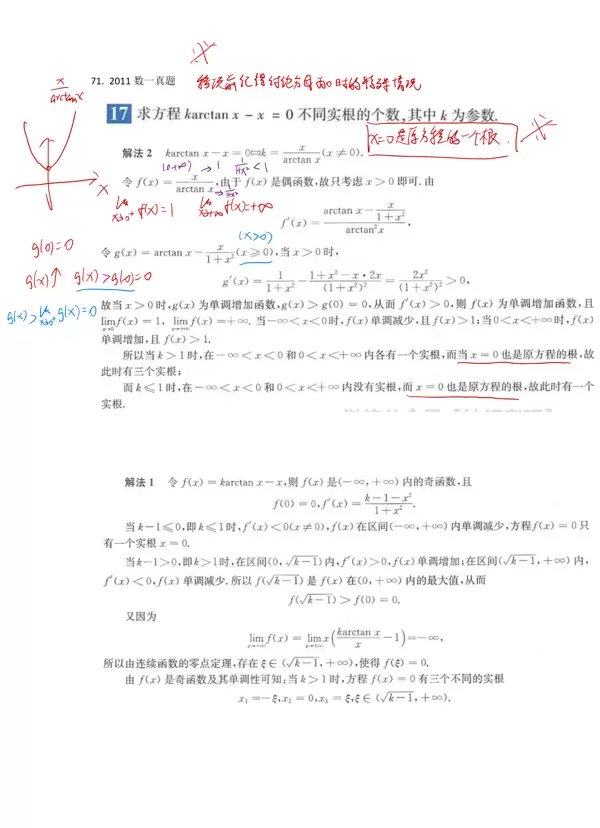 71. 2011 数一真题
移项前记得讨论分母为0时的特殊情况
x
arctanx
17 求方程 karctan x − x = 0 不同实根的个数,其中 k 为参数.
x=0是原方程的一个根.
解法 2 karctan x − x = 0⇔k = x/arctan x (x ≠ 0).
(0,+∞) → 1 1/(1+x²) < 1
令 f(x) = x/arctan x,由于 f(x) 是偶函数,故只考虑 x > 0 即可.由
lim x→0⁺ f(x)=1 lim x→+∞ f(x)=+∞
f′(x) = (arctan x − x/(1+x²))/arctan²x,
g(0)=0
(x>0)
令 g(x) = arctan x − x/(1+x²) (x ≥ 0),当 x > 0 时,
g(x)↑ g(x)>g(0)=0
g′(x) = 1/(1+x²) − (1+x²−x·2x)/(1+x²)² = 2x²/(1+x²)² > 0,
g(x)>lim x→0⁺ g(x)=0
故当 x > 0 时,g(x) 为单调增加函数,g(x) > g(0) = 0,从而 f′(x) > 0,则 f(x) 为单调增加函数,且
lim x→0 f(x) = 1, lim x→+∞ f(x) = +∞. 当−∞ < x < 0时,f(x) 单调减少,且 f(x) > 1;当 0 < x < +∞ 时,f(x)
单调增加,且 f(x) > 1.
所以当 k > 1 时,在 −∞ < x < 0 和 0 < x < +∞ 内各有一个实根,而当 x = 0 也是原方程的根,故
此时有三个实根;
而 k ≤ 1 时,在 −∞ < x < 0 和 0 < x < +∞ 内没有实根,而 x = 0 也是原方程的根,故此时有一个
实根.
解法 1 令 f(x) = karctan x − x,则 f(x) 是(−∞, +∞) 内的奇函数,且
f(0) = 0, f′(x) = (k−1−x²)/(1+x²).
当 k−1≤0,即 k≤1时,f′(x) < 0(x≠0),f(x) 在区间(−∞, +∞) 内单调减少,方程 f(x) = 0 只
有一个实根 x = 0.
当 k−1>0,即 k>1时,在区间(0, √(k−1)) 内,f′(x) > 0,f(x) 单调增加;在区间(√(k−1), +∞) 内,
f′(x) < 0,f(x) 单调减少. 所以 f(√(k−1)) 是 f(x) 在(0, +∞) 内的最大值,从而
f(√(k−1)) > f(0) = 0.
又因为
lim x→+∞ f(x) = lim x→+∞ x(karctan x/x − 1) = −∞,
所以由连续函数的零点定理,存在 ξ ∈ (√(k−1), +∞),使得 f(ξ) = 0.
由 f(x) 是奇函数及其单调性可知:当 k > 1 时,方程 f(x) = 0 有三个不同的实根
x₁ = −ξ, x₂ = 0, x₃ = ξ, ξ ∈ (√(k−1), +∞).